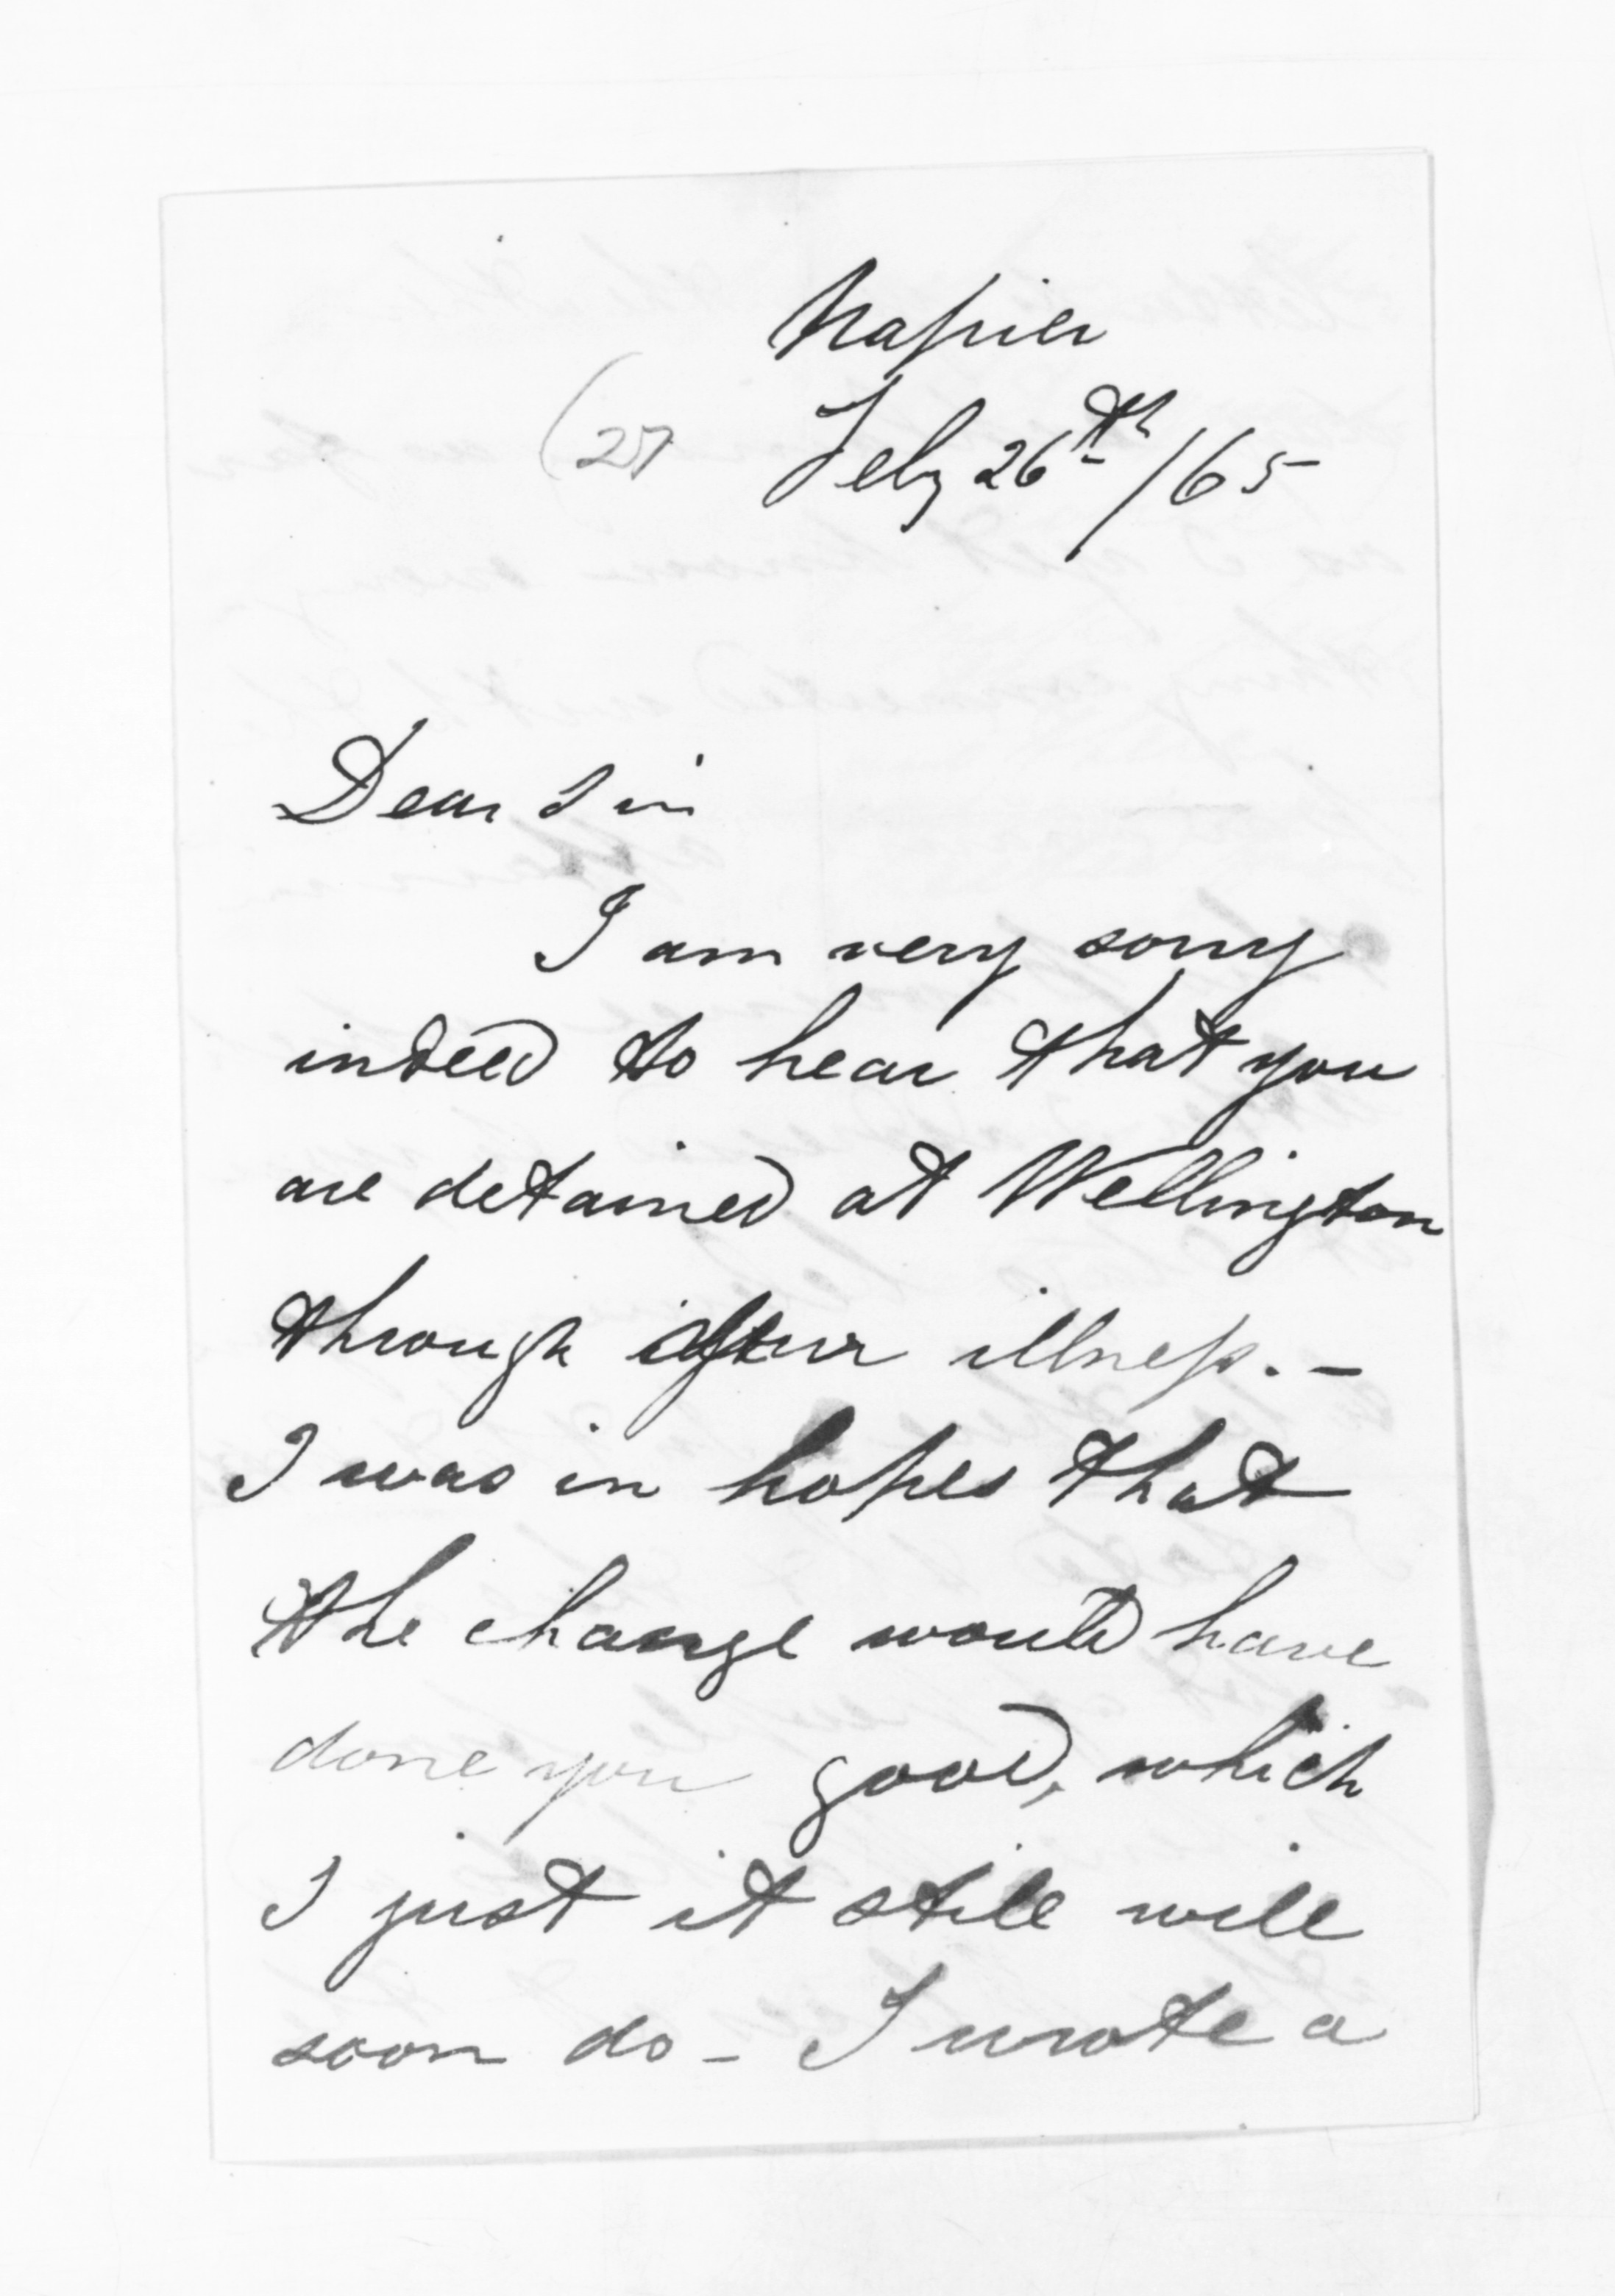 Napier
(27 Feby 26th /65
Dear Sir
I am very sorry
indeed to hear that you
are detained at Wellington
through illness. -
I was in hopes that
the change would have
done you good, which
I just it still will
soon do - I wrote a